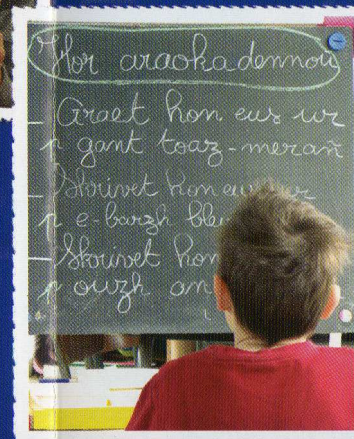 Hor araokadennoù
_ Graet hon eus ur
p gant toaz-merañ
_ Skrivet hon eus ur
p e-barzh
_ Skrivet hon
p ouzh an